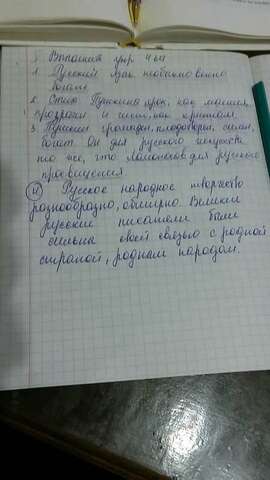 Выполнить упр 404
1. Русский язык необыкновенно
богат
2. Стих Пушкина ярок, как молния,
прозрачен и чист, как кристалл.
3. Пушкин громаден, плодотворен, силен,
богат. Он для русского искусства
то же, что Ломоносов для русского
просвещения
4 Русское народное творчество
разнообразно, обширно. Великие
русские писатели были
сильны своей связью с родной
страной, родным народом.